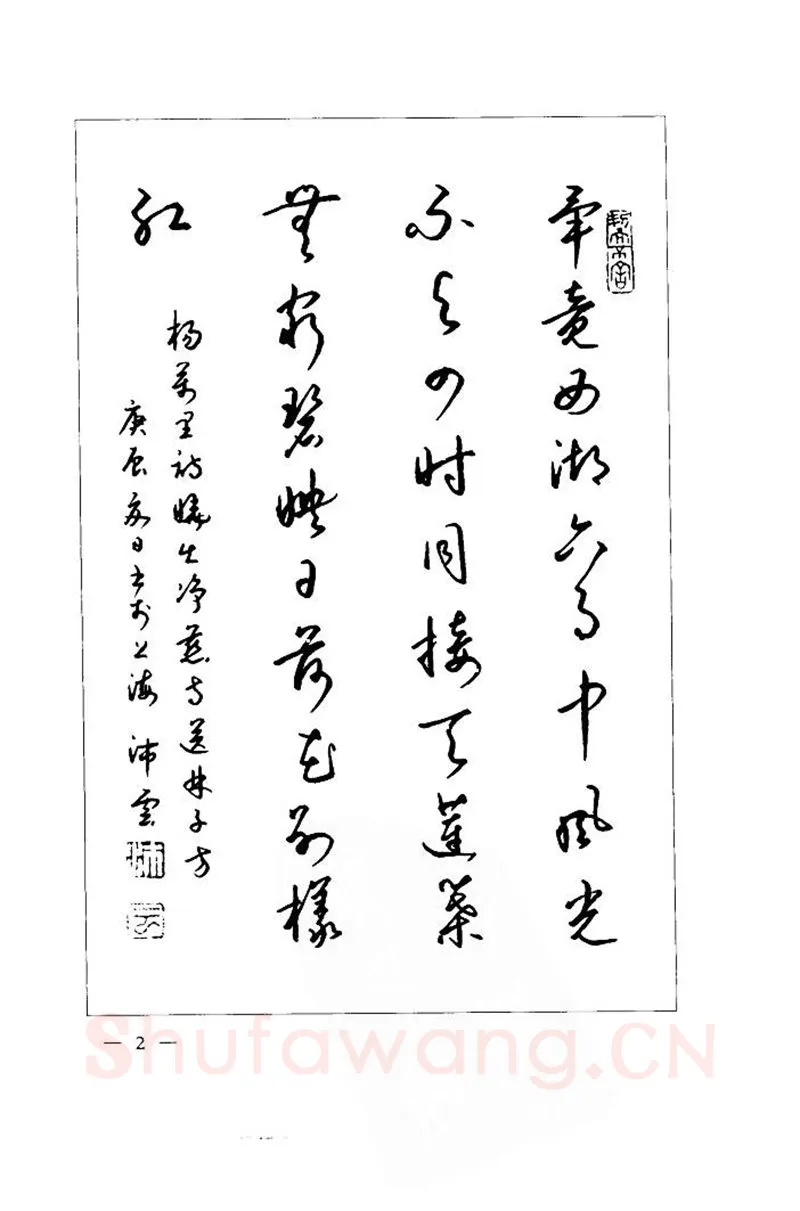 畢竟西湖六月中風光
不与四时同接天蓮葉
無窮碧映日荷花别樣
红
杨萬里诗曉出净慈寺送林子方
庚辰夏日书于上海 沛雲
沛
云
— 2 —
Shufawang.CN